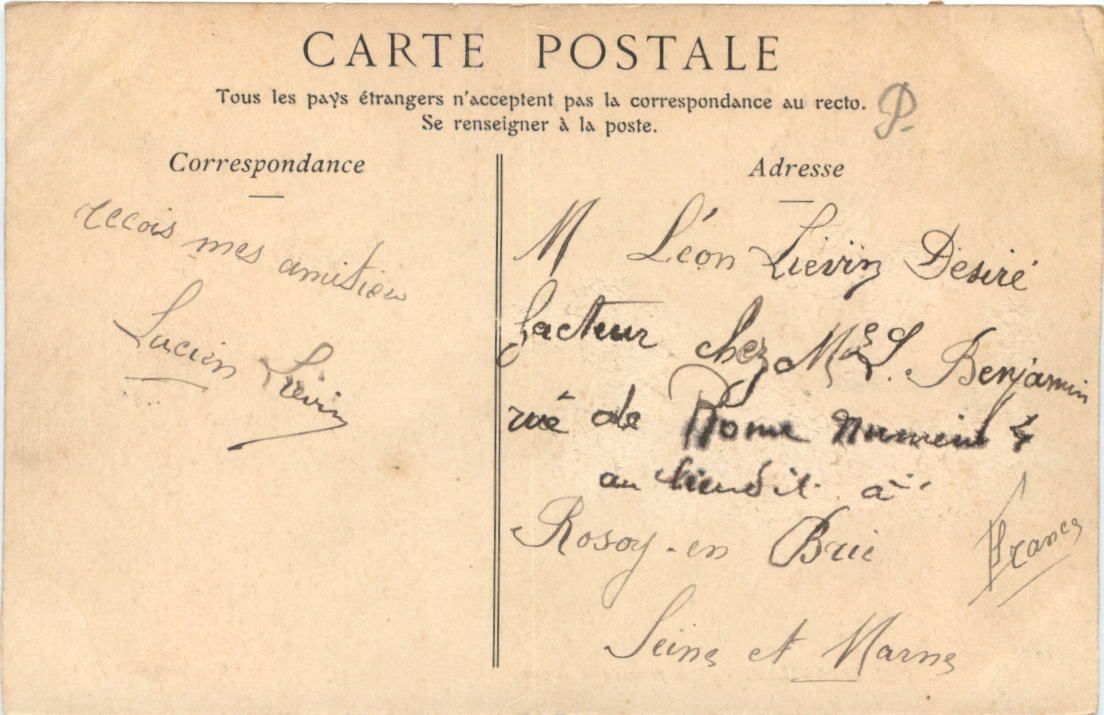 CARTE POSTALE
Tous les pays étrangers n'acceptent pas la correspondance au recto.
Se renseigner à la poste.
P.
Correspondance
recois mes amitiés
Lucien Liévin
Adresse
M Léon Liévin Désiré
facteur chez Benjamin
rue de Rome 4
au lieudit à
Rosoy-en Brie
France
Seine et Marne